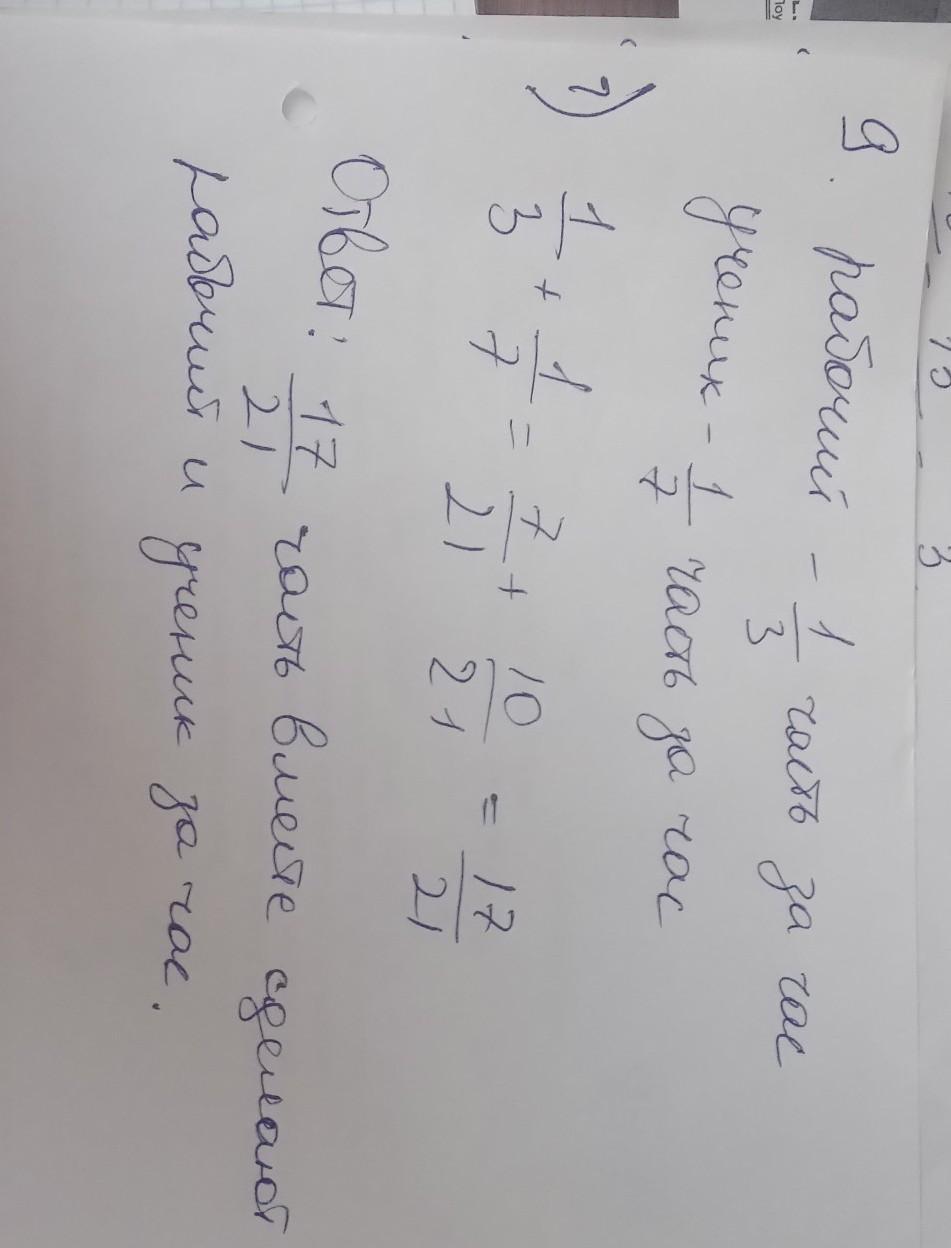 9. рабочий - 1/3 часть за час
ученик - 1/7 часть за час
1) 1/3 + 1/7 = 7/21 + 10/21 = 17/21
Ответ: 17/21 часть вместе сделают
рабочий и ученик за час.